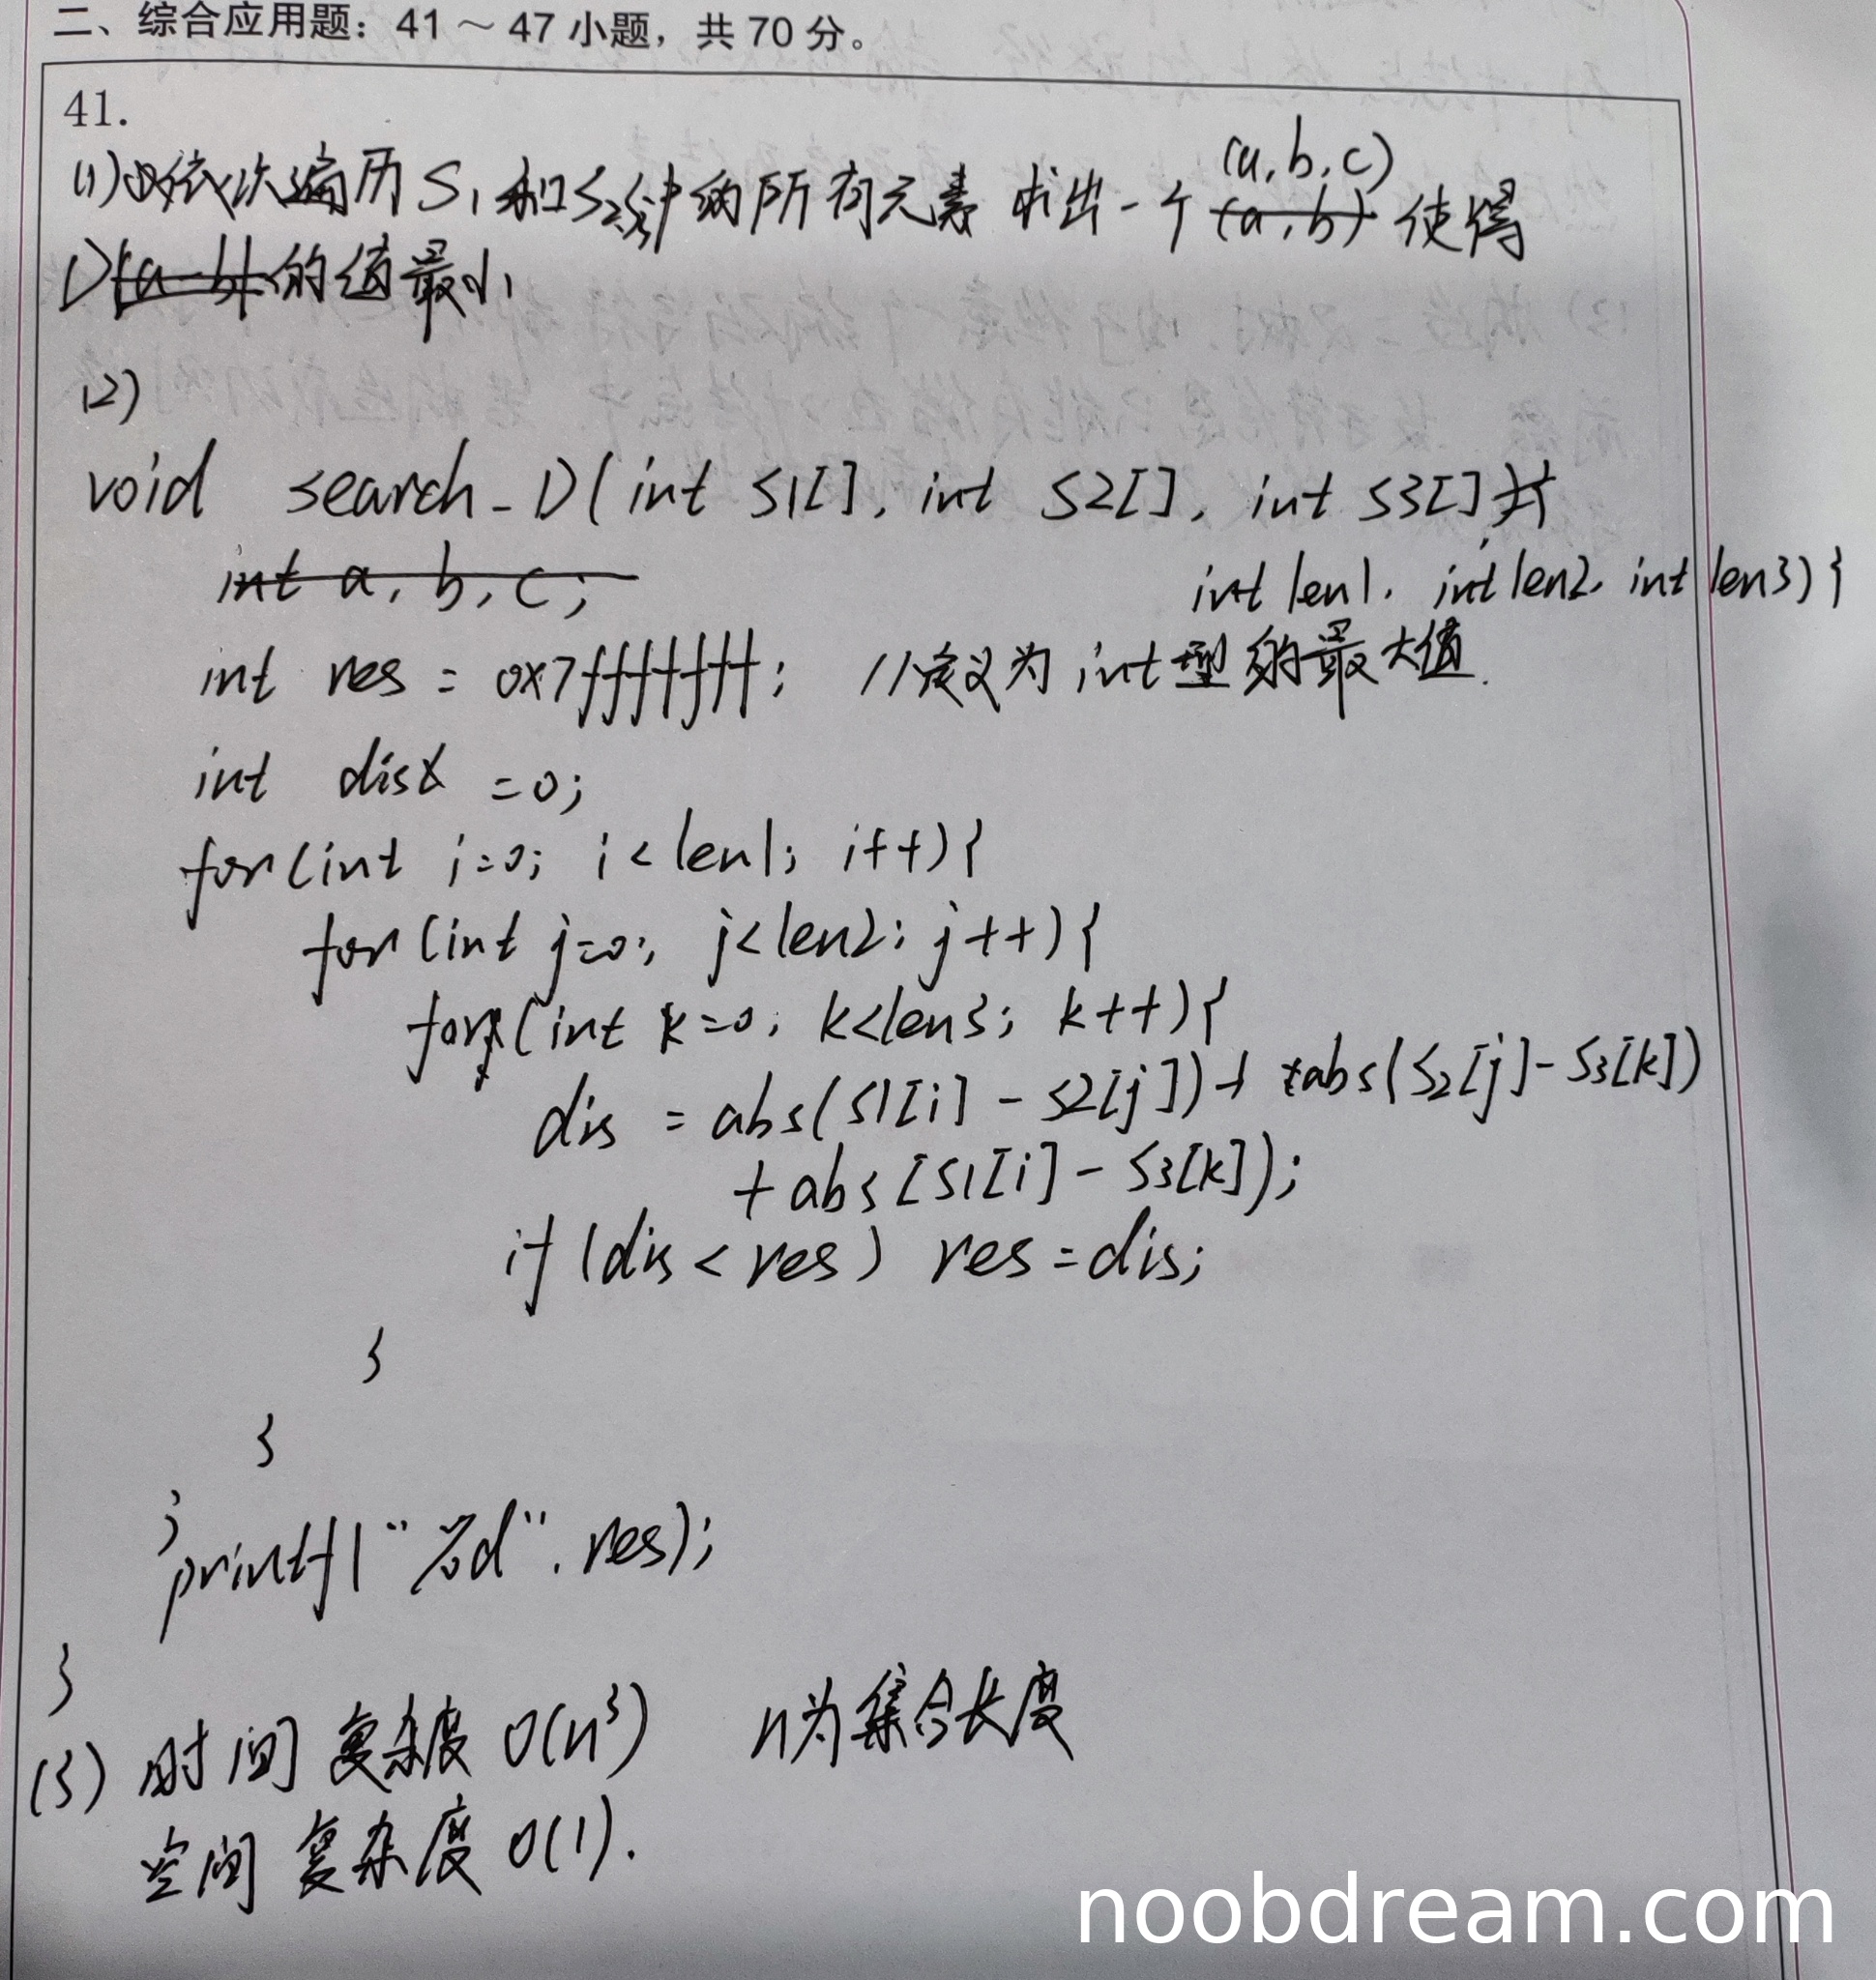 二、综合应用题：41～47 小题，共 70 分。
41.
(1) 依次遍历 S1和S2,S3中的所有元素 求出一个 (a,b) (a,b,c) 使得
D|a-b|的值最小
(2)
void search_D(int S1[], int S2[], int S3[]
int a, b, c;
int len1, int len2, int len3){
int res = 0x7fffffff; //定义为int型的最大值.
int dis =0;
for(int i=0; i<len1; i++){
for(int j=0; j<len2; j++){
for(int k=0; k<len3; k++){
dis = abs(S1[i] - S2[j]) + abs(S2[j]-S3[k])
+ abs[S1[i]-S3[k]);
if (dis < res) res=dis;
}
}
}
printf("%d", res);
}
(3) 时间复杂度 O(n³) n为集合长度
空间复杂度 O(1).
noobdream.com